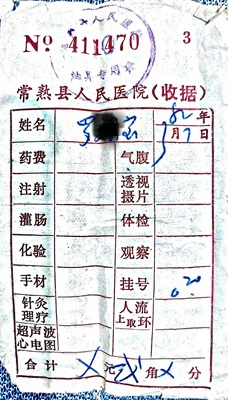 人民医
专用章
No 411470 3
常熟县人民医院(收据)
姓名 82年
月7日
药费 气腹
注射 透视摄片
灌肠 体检
化验 观察
手材 挂号 0.20
针灸理疗 人流上取环
超声波心电图
合计 X元 角X分